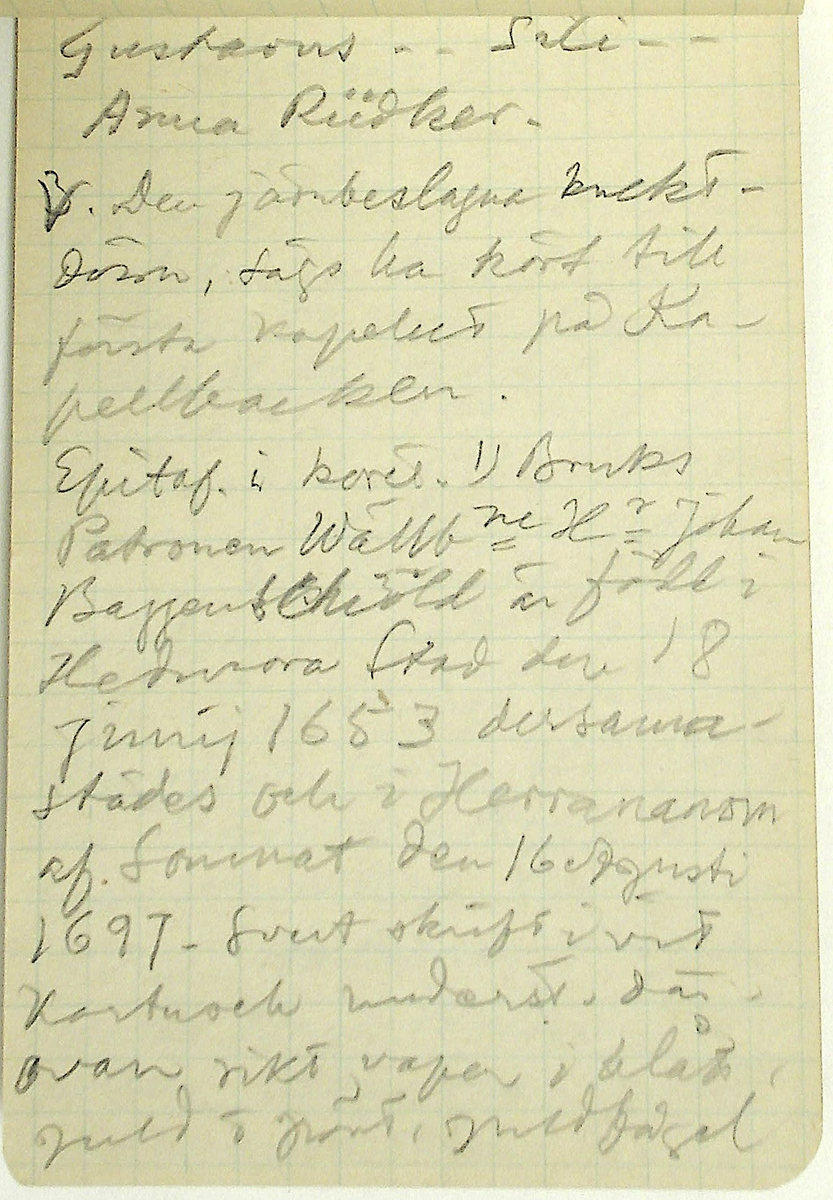 Gustavus - - Siti - -
Anna Rüdker.
3. Den järnbeslagna
dörren, sägs ha hört till
första kapellet på Ka-
pellbacken.
Epitaf. i koret. 1) Bruks
Patronen Wällb ne H r Johan
Baggenschiöld är född i
Hedmora Stad den 18
Junij 1653 dersamma-
städes och i Herrananom
af. Somnat den 16 Agusti
1697. Svart skrift i vit
Kartuoch underst. där-
ovan rikt vapen i blått,
guld i , guldfågel